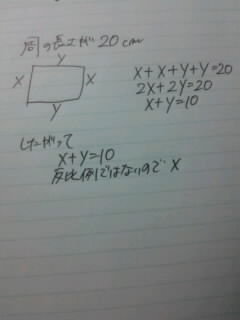 周の長さが20cm
Y
X
X
Y
X+X+Y+Y=20
2X+2Y=20
X+Y=10
したがって
X+Y=10
反比例ではないので X